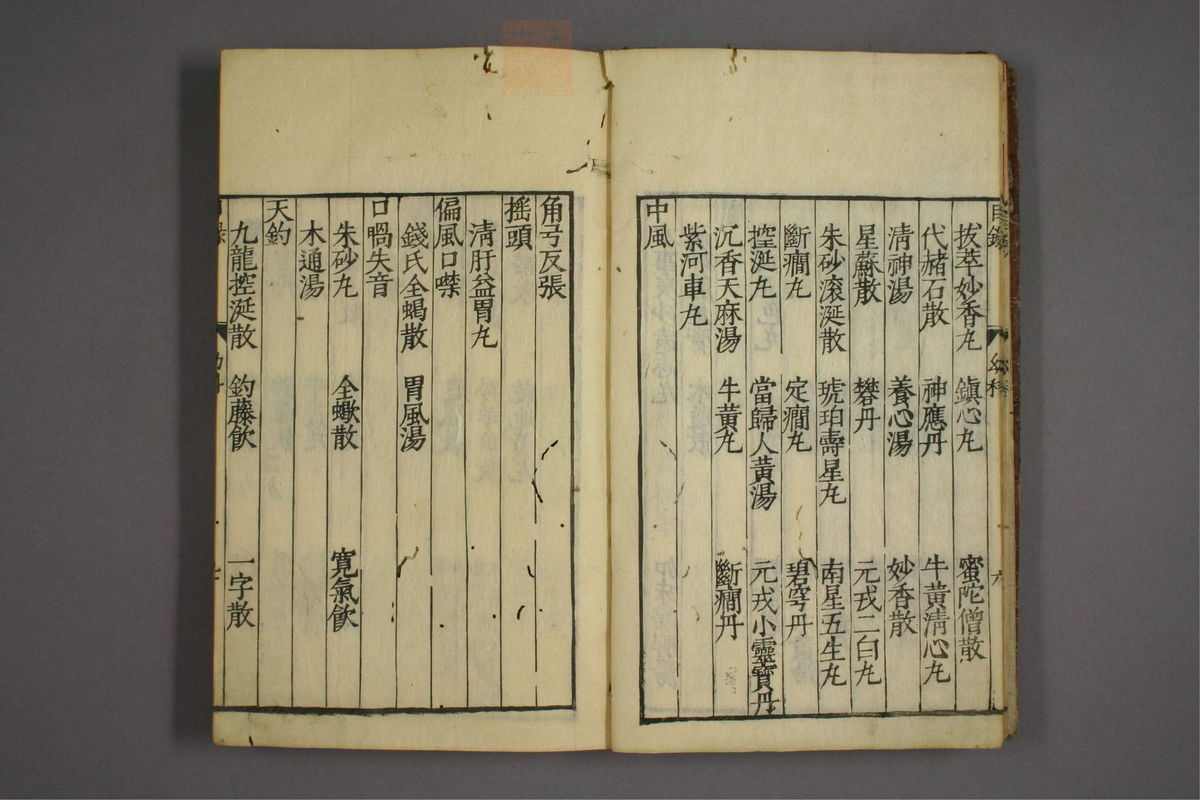 目錄 幼科 六
拔萃妙香丸 鎮心丸 蜜陀僧散
代赭石散 神應丹 牛黃清心丸
清神湯 養心湯 妙香散
星蘇散 礬丹 元戎二白丸
朱砂滚涎散 琥珀壽星丸 南星五生丸
斷癎丸 定癎丸 碧穹丹
控涎丸 當歸人黃湯 元戎小靈寶丹
沉香天麻湯 牛黃丸 斷癎丹
紫河車丸
中風
角弓反張
搖頭
清肝益胃丸
偏風口噤
錢氏全蝎散 胃風湯
口喎失音
朱砂丸 全蠍散 寬氣飲
木通湯
天釣
九龍控涎散 釣藤飲 一字散